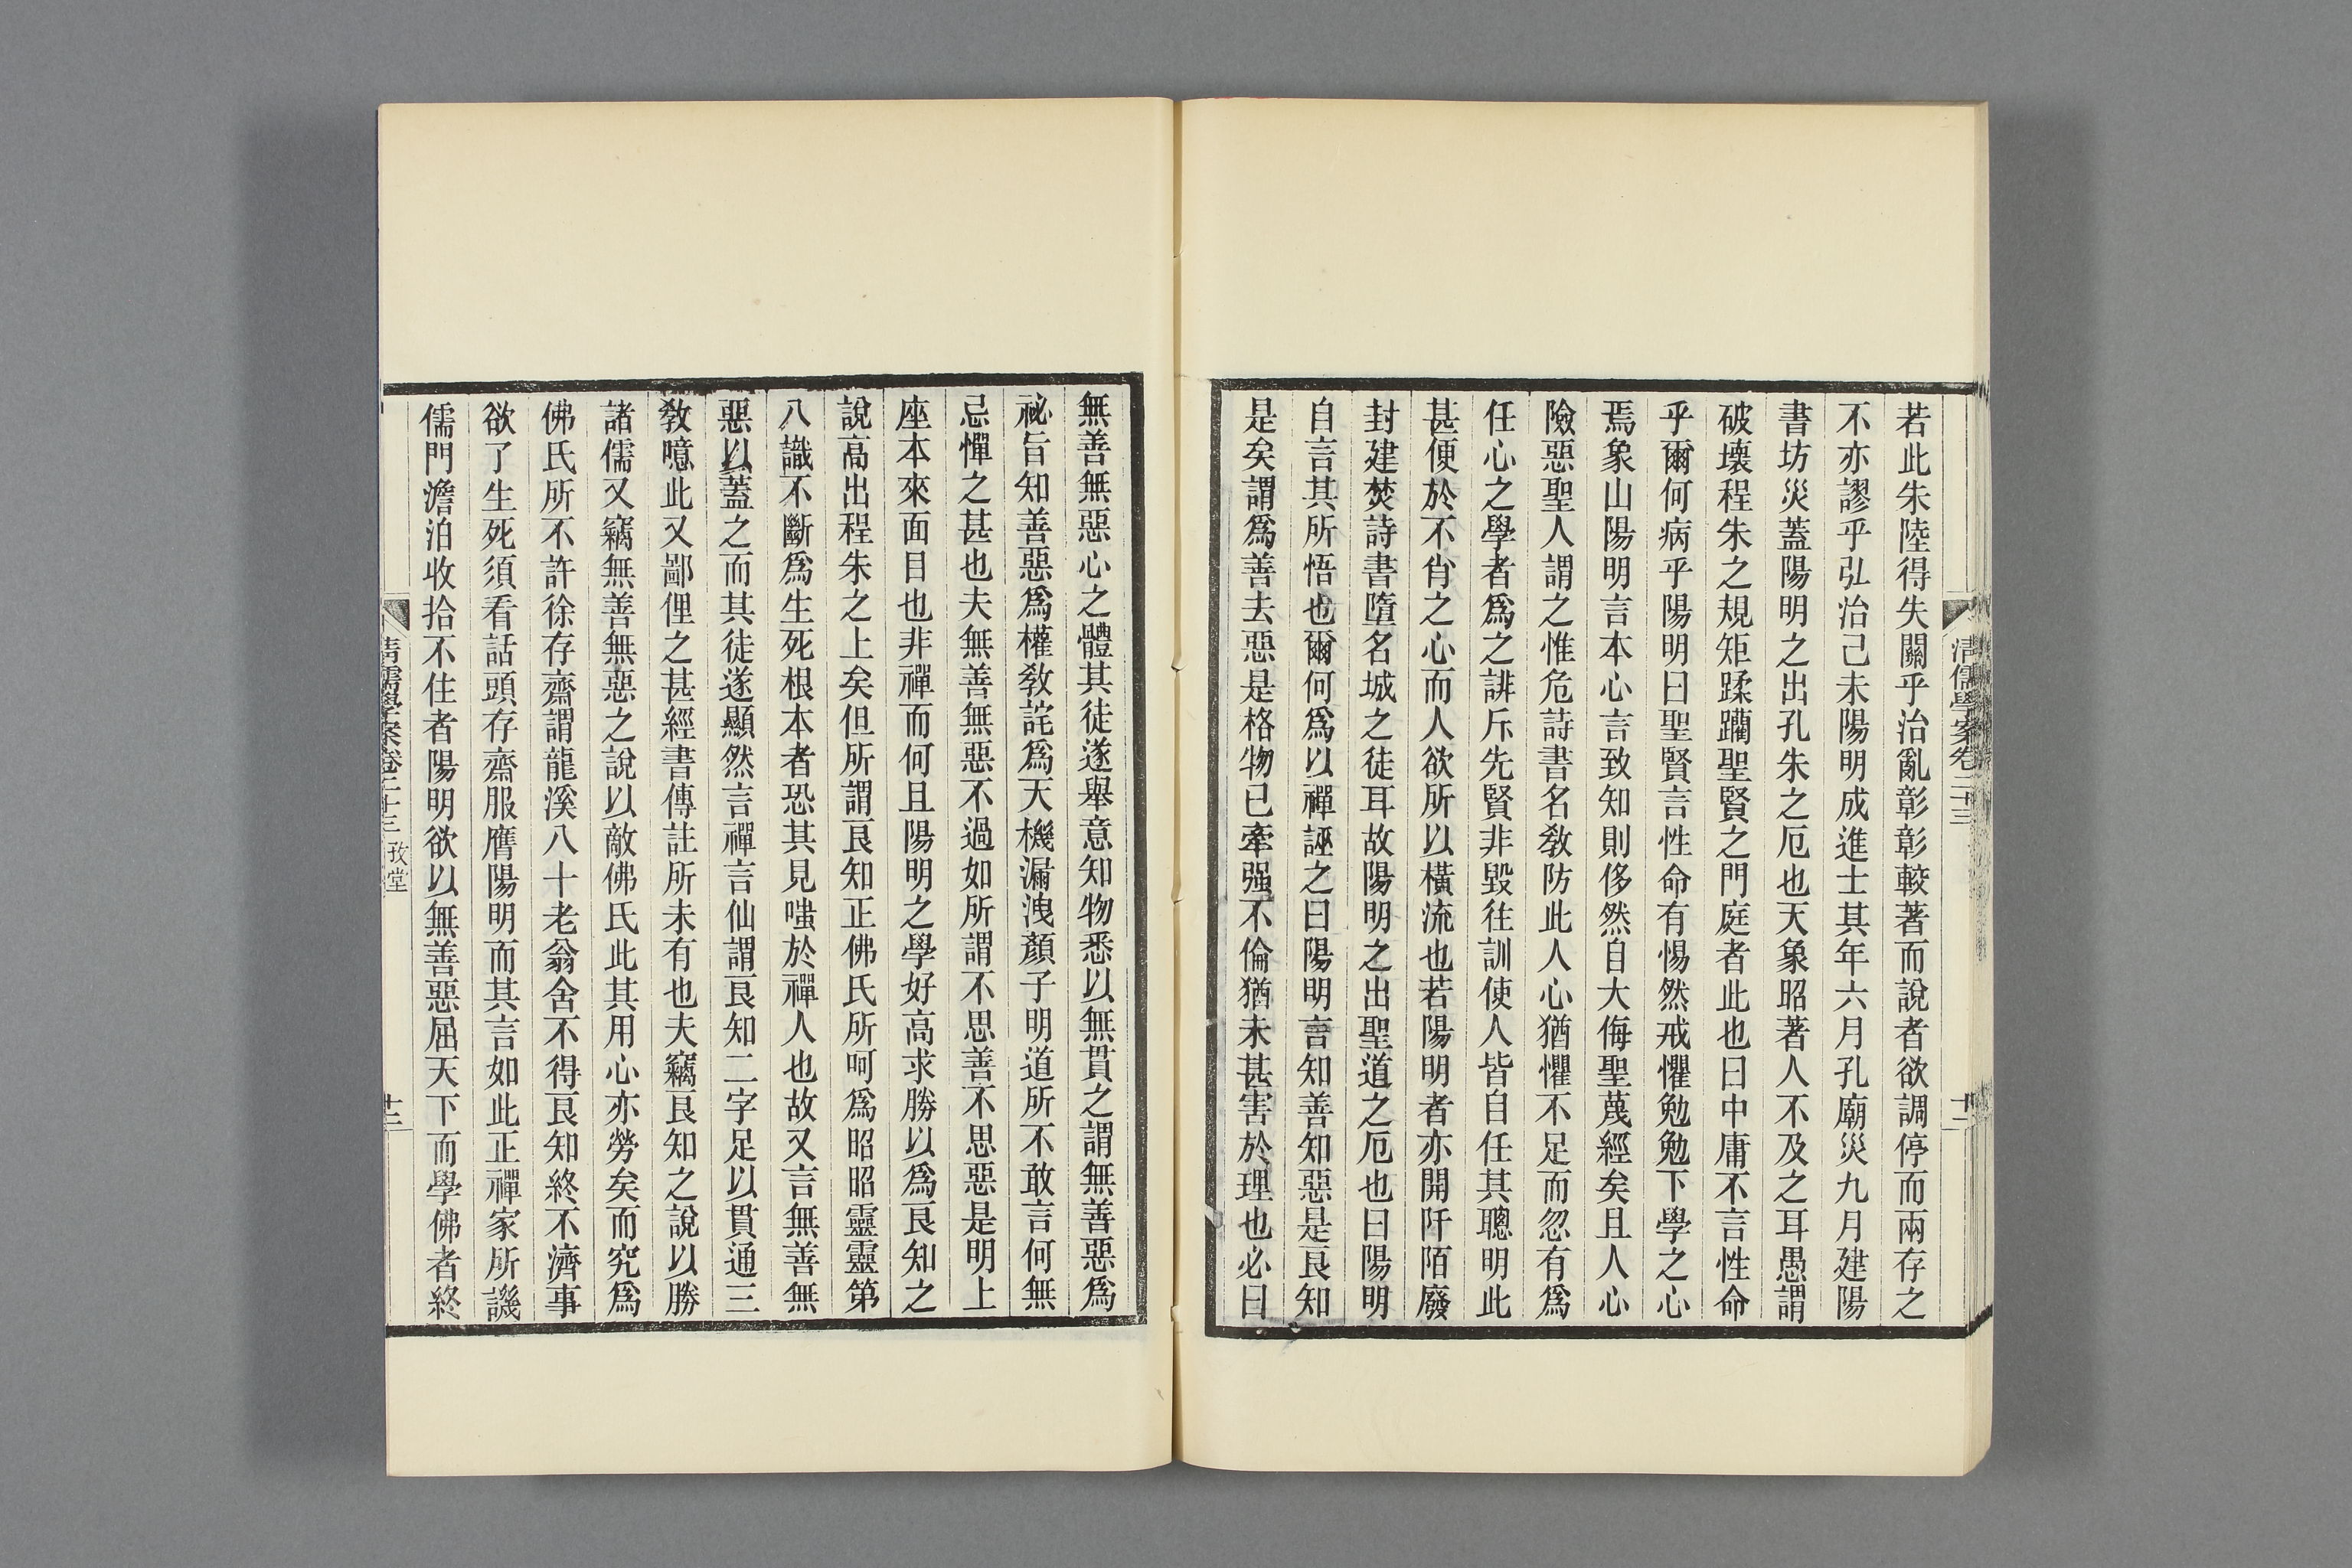 清儒學案卷二十三
十二
若此朱陸得失關乎治亂彰彰較著而說者欲調停而兩存之
不亦謬乎弘治己未陽明成進士其年六月孔廟災九月建陽
書坊災蓋陽明之出孔朱之厄也天象昭著人不及之耳愚謂
破壞程朱之規矩蹂躪聖賢之門庭者此也曰中庸不言性命
乎爾何病乎陽明曰聖賢言性命有惕然戒懼勉勉下學之心
焉象山陽明言本心言致知則侈然自大侮聖蔑經矣且人心
險惡聖人謂之惟危詩書名敎防此人心猶懼不足而忽有爲
任心之學者爲之誹斥先賢非毀往訓使人皆自任其聰明此
甚便於不肖之心而人欲所以橫流也若陽明者亦開阡陌廢
封建焚詩書墮名城之徒耳故陽明之出聖道之厄也曰陽明
自言其所悟也爾何爲以禪誣之曰陽明言知善知惡是良知
是矣謂爲善去惡是格物已牽强不倫猶未甚害於理也必曰
無善無惡心之體其徒遂舉意知物悉以無貫之謂無善惡爲
祕旨知善惡爲權敎詫爲天機漏洩顏子明道所不敢言何無
忌憚之甚也夫無善無惡不過如所謂不思善不思惡是明上
座本來面目也非禪而何且陽明之學好高求勝以爲良知之
說高出程朱之上矣但所謂良知正佛氏所呵爲昭昭靈靈第
八識不斷爲生死根本者恐其見嗤於禪人也故又言無善無
惡以蓋之而其徒遂顯然言禪言仙謂良知二字足以貫通三
敎噫此又鄙俚之甚經書傳註所未有也夫竊良知之說以勝
諸儒又竊無善無惡之說以敵佛氏此其用心亦勞矣而究爲
佛氏所不許徐存齋謂龍溪八十老翁舍不得良知終不濟事
欲了生死須看話頭存齋服膺陽明而其言如此正禪家所譏
儒門澹泊收拾不住者陽明欲以無善惡屈天下而學佛者終
清儒學案卷二十三
孜堂
十三